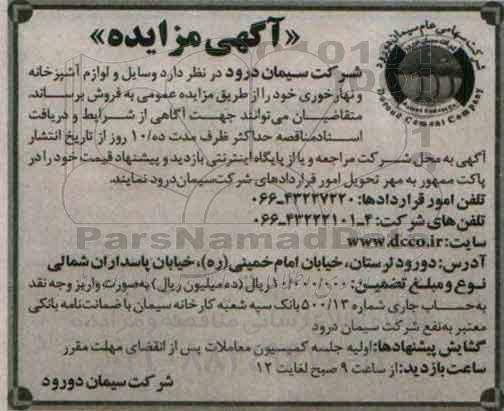 «آگهی مزایده»
شرکت سهامی عام سیمان دورود
Doroud Cement Company
شرکت سیمان درود در نظر دارد وسایل و لوازم آشپزخانه
و نهارخوری خود را از طریق مزایده عمومی به فروش برساند.
متقاضیان می‌توانند جهت آگاهی از شرایط و دریافت
اسناد مناقصه حداکثر ظرف مدت ده/۱۰ روز از تاریخ انتشار
آگهی به محل شرکت مراجعه و یا از پایگاه اینترنتی بازدید و پیشنهاد قیمت خود را در
پاکت ممهور به مهر تحویل امور قراردادهای شرکت سیمان درود نمایند.
تلفن امور قراردادها: ۴۳۲۲۷۲۲۰-۰۶۶
تلفن‌های شرکت: ۴-۴۳۲۲۲۱۰۱-۰۶۶
سایت: www.dcco.ir
آدرس: دورود لرستان، خیابان امام خمینی (ره)، خیابان پاسداران شمالی
نوع و مبلغ تضمین: ۱۰/۰۰۰/۰۰۰ ریال (ده میلیون ریال) به‌صورت واریز وجه نقد
به‌حساب جاری شماره ۵۰۰/۱۳ بانک سپه شعبه کارخانه سیمان یا ضمانت‌نامه بانکی
معتبر به‌نفع شرکت سیمان درود
گشایش پیشنهادها: اولیه جلسه کمیسیون معاملات پس از انقضای مهلت مقرر
ساعت بازدید: از ساعت ۹ صبح لغایت ۱۲
شرکت سیمان دورود
ParsNamadData